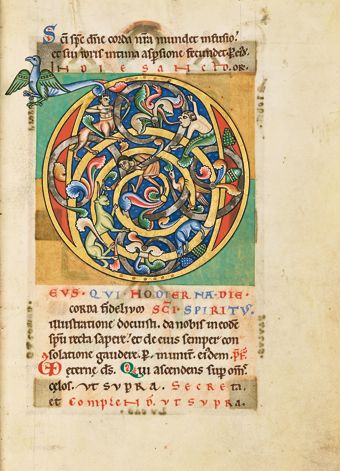 Sci sps dne corda nra mundet infusio:
et sui roris intima aspsione fecundet. P. eid.
IN DIE SANCTO. OR.
EUS. QUI HODIERNA DIE
corda fidelium SCI SPIRITUS
illustratione docuisti. da nobis in eode
spu recta sapere. et de eius semper con
solatione gaudere. P.
eterne ds. Qui ascendens sup oms
celos. UT SUPRA. SECRETA.
et COMPLEND. UT SUPRA.